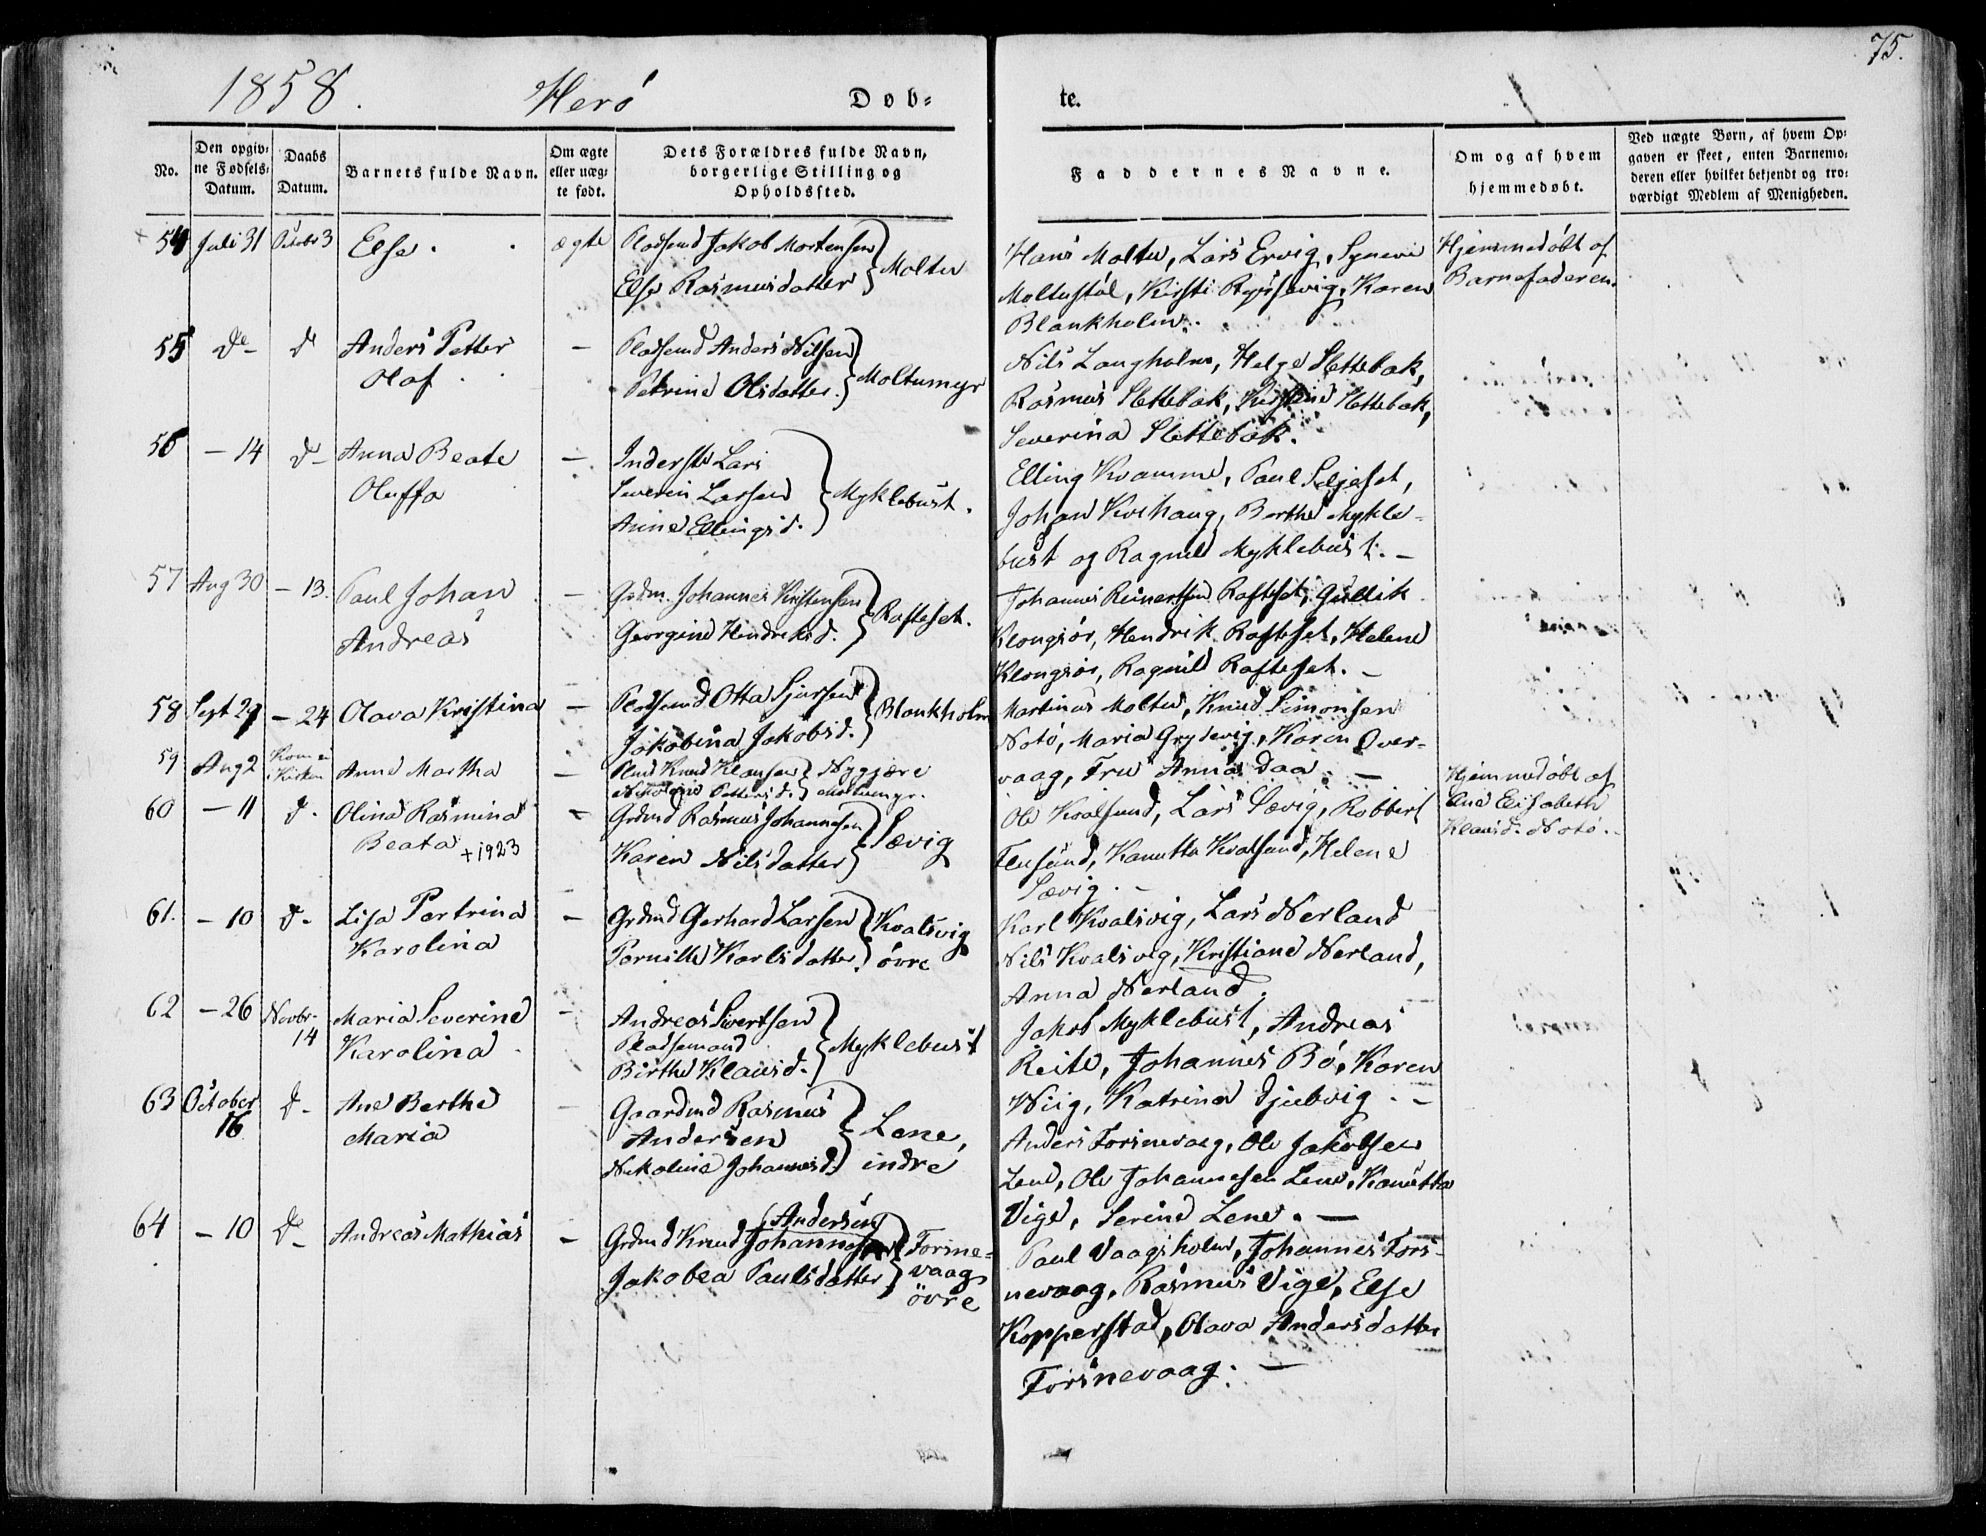 75.
1858. Herö Døb=
te.
No.
Den opgiv=
ne Fødsels=
Datum.
Daabs
Datum.
Barnets fulde Navn.
Om ægte
eller uæg=
te født.
Dets Forældres fulde Navn,
borgerlige Stilling og
Opholdssted.
Faddernes Navne.
Om og af hvem
hjemmedøbt.
Ved uægte Børn, af hvem Op=
gaven er skeet, enten Barnemo=
deren eller hvilket bekjendt og tro=
værdigt Medlem af Menigheden.
54 Juli 31 Octobr 3 Else. ægte Pladsmd Jakob Mortensen
Else Rasmusdatter } Moltu
Hans Moltu, Lars Ervig, Synevi
Moltustøl, Kirsti Røssevig, Karen
Blankholm.
Hjemmedøbt af
Barnefaderen.
55 do - d Anders Petter
Olaf. - Pladsmd Anders Nilsen
Petrine Olsdatter. } Moltumyr
Nils Langholm, Helge Slettebak,
Rasmus Slettebak, Kirstine Slettebak,
Severina Slettebak.
56 - 14 d- Anna Beate
Oluffa - Inderste Lars
Severin Larsen
Anne Ellingsd. } Myklebust.
Elling Kvamme, Paul Seljeset,
Johan Kvihaug, Berthe Mykle-
bust og Ragnild Myklebust. -
57 Aug 30 - 13. Paul Johan
Andreas - Grdm. Johannes Kristensen
Georgine Hendriksd. } Rafteset.
Johannes Reinertsen Rafteset, Gullik
Klongsör, Hendrik Rafteset, Helene
Klongsör, Ragnild Rafteset. -
58 Sept 29 - 24 Olava Kristina - Pladsmd Otta Sjursen
Jakobina Jakobsd. } Blankholm
Martinus Moltu, Knud Simonsen
Notö, Maria Grydevig, Karen Over-
vaag, Fru Anna Daa. -
59 Aug 2 Kom ei
i Kirken Anne Martha - Plmd Knud Klausen } Nygjære
Nikoline Pettersd. } Moltumyr.
Hjemmedøbt af
Ane Elisabeth
Klausd. Notö.
60 - 11 d. Olina Rasmina
Beata +1923 - Grdmd Rasmus Johannesen
Karen Nilsdatter } Sævig
Ole Kvalsund, Lars Sævig, Robbert
Flusund, Kanutta Kvalsund, Helene
Sævig. -
61. - 10 d- Lisa Partrina
Karolina - Grdmd Gerhard Larsen
Pernille Karlsdatter. } Kvalsvig
övre
Karl Kvalsvig, Lars Nerland
Nils Kvalsvig, Kristiane Nerland,
Anna Nerland.
62 - 26 Novbr-
14 Maria Severine
Karolina. - Andreas Sivertsen
Pladsemand
Birthe Klausd. } Myklebust
Jakob Myklebust, Andreas
Reite, Johannes Bö, Karen
Wiig, Katrina Djubvig. -
63 October
16 d- Ane Berthe
Maria - Gaardmd Rasmus
Andersen
Nikoline Johannesd. } Lene,
indre
Anders Forsnevaag, Ole Jakobsen
Lene, Ole Johannesen Lene, Kanutta
Vige, Serine Lene. -
64 - 10 d- Andreas Mathias - Grdmd Knud Johannesen (Andersen)
Jakobea Paulsdatter } Forsne-
vaag
övre
Paul Vaagsholm, Johannes Fors-
nevaag, Rasmus Vige, Else
Kopperstad, Olava Andersdatter
Forsnevaag. -